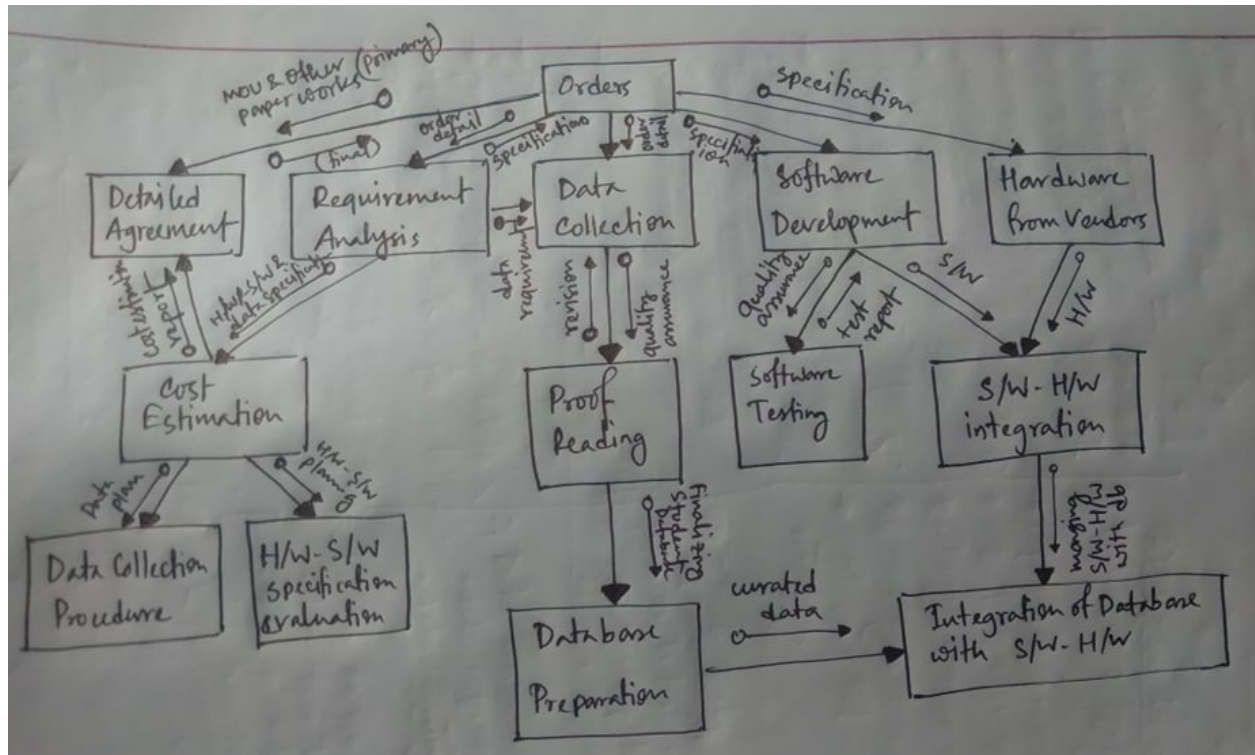 MOU & Other (primary)
paper works
Orders
specification
order
detail
specifications
(final)
Detailed
Agreement
Requirement
Analysis
Data
Collection
Software
Development
Hardware
from Vendors
report
H/W, S/W &
data
requirements
revision
quality
assurance
quality
assurance
test
report
S/W
H/W
Cost
Estimation
Proof
Reading
Software
Testing
S/W - H/W
integration
Data
plan
H/W-S/W
planning
Finalizing
Student
Database
Data Collection
Procedure
H/W-S/W
specification
evaluation
Database
Preparation
curated
data
Integration of Database
with S/W-H/W